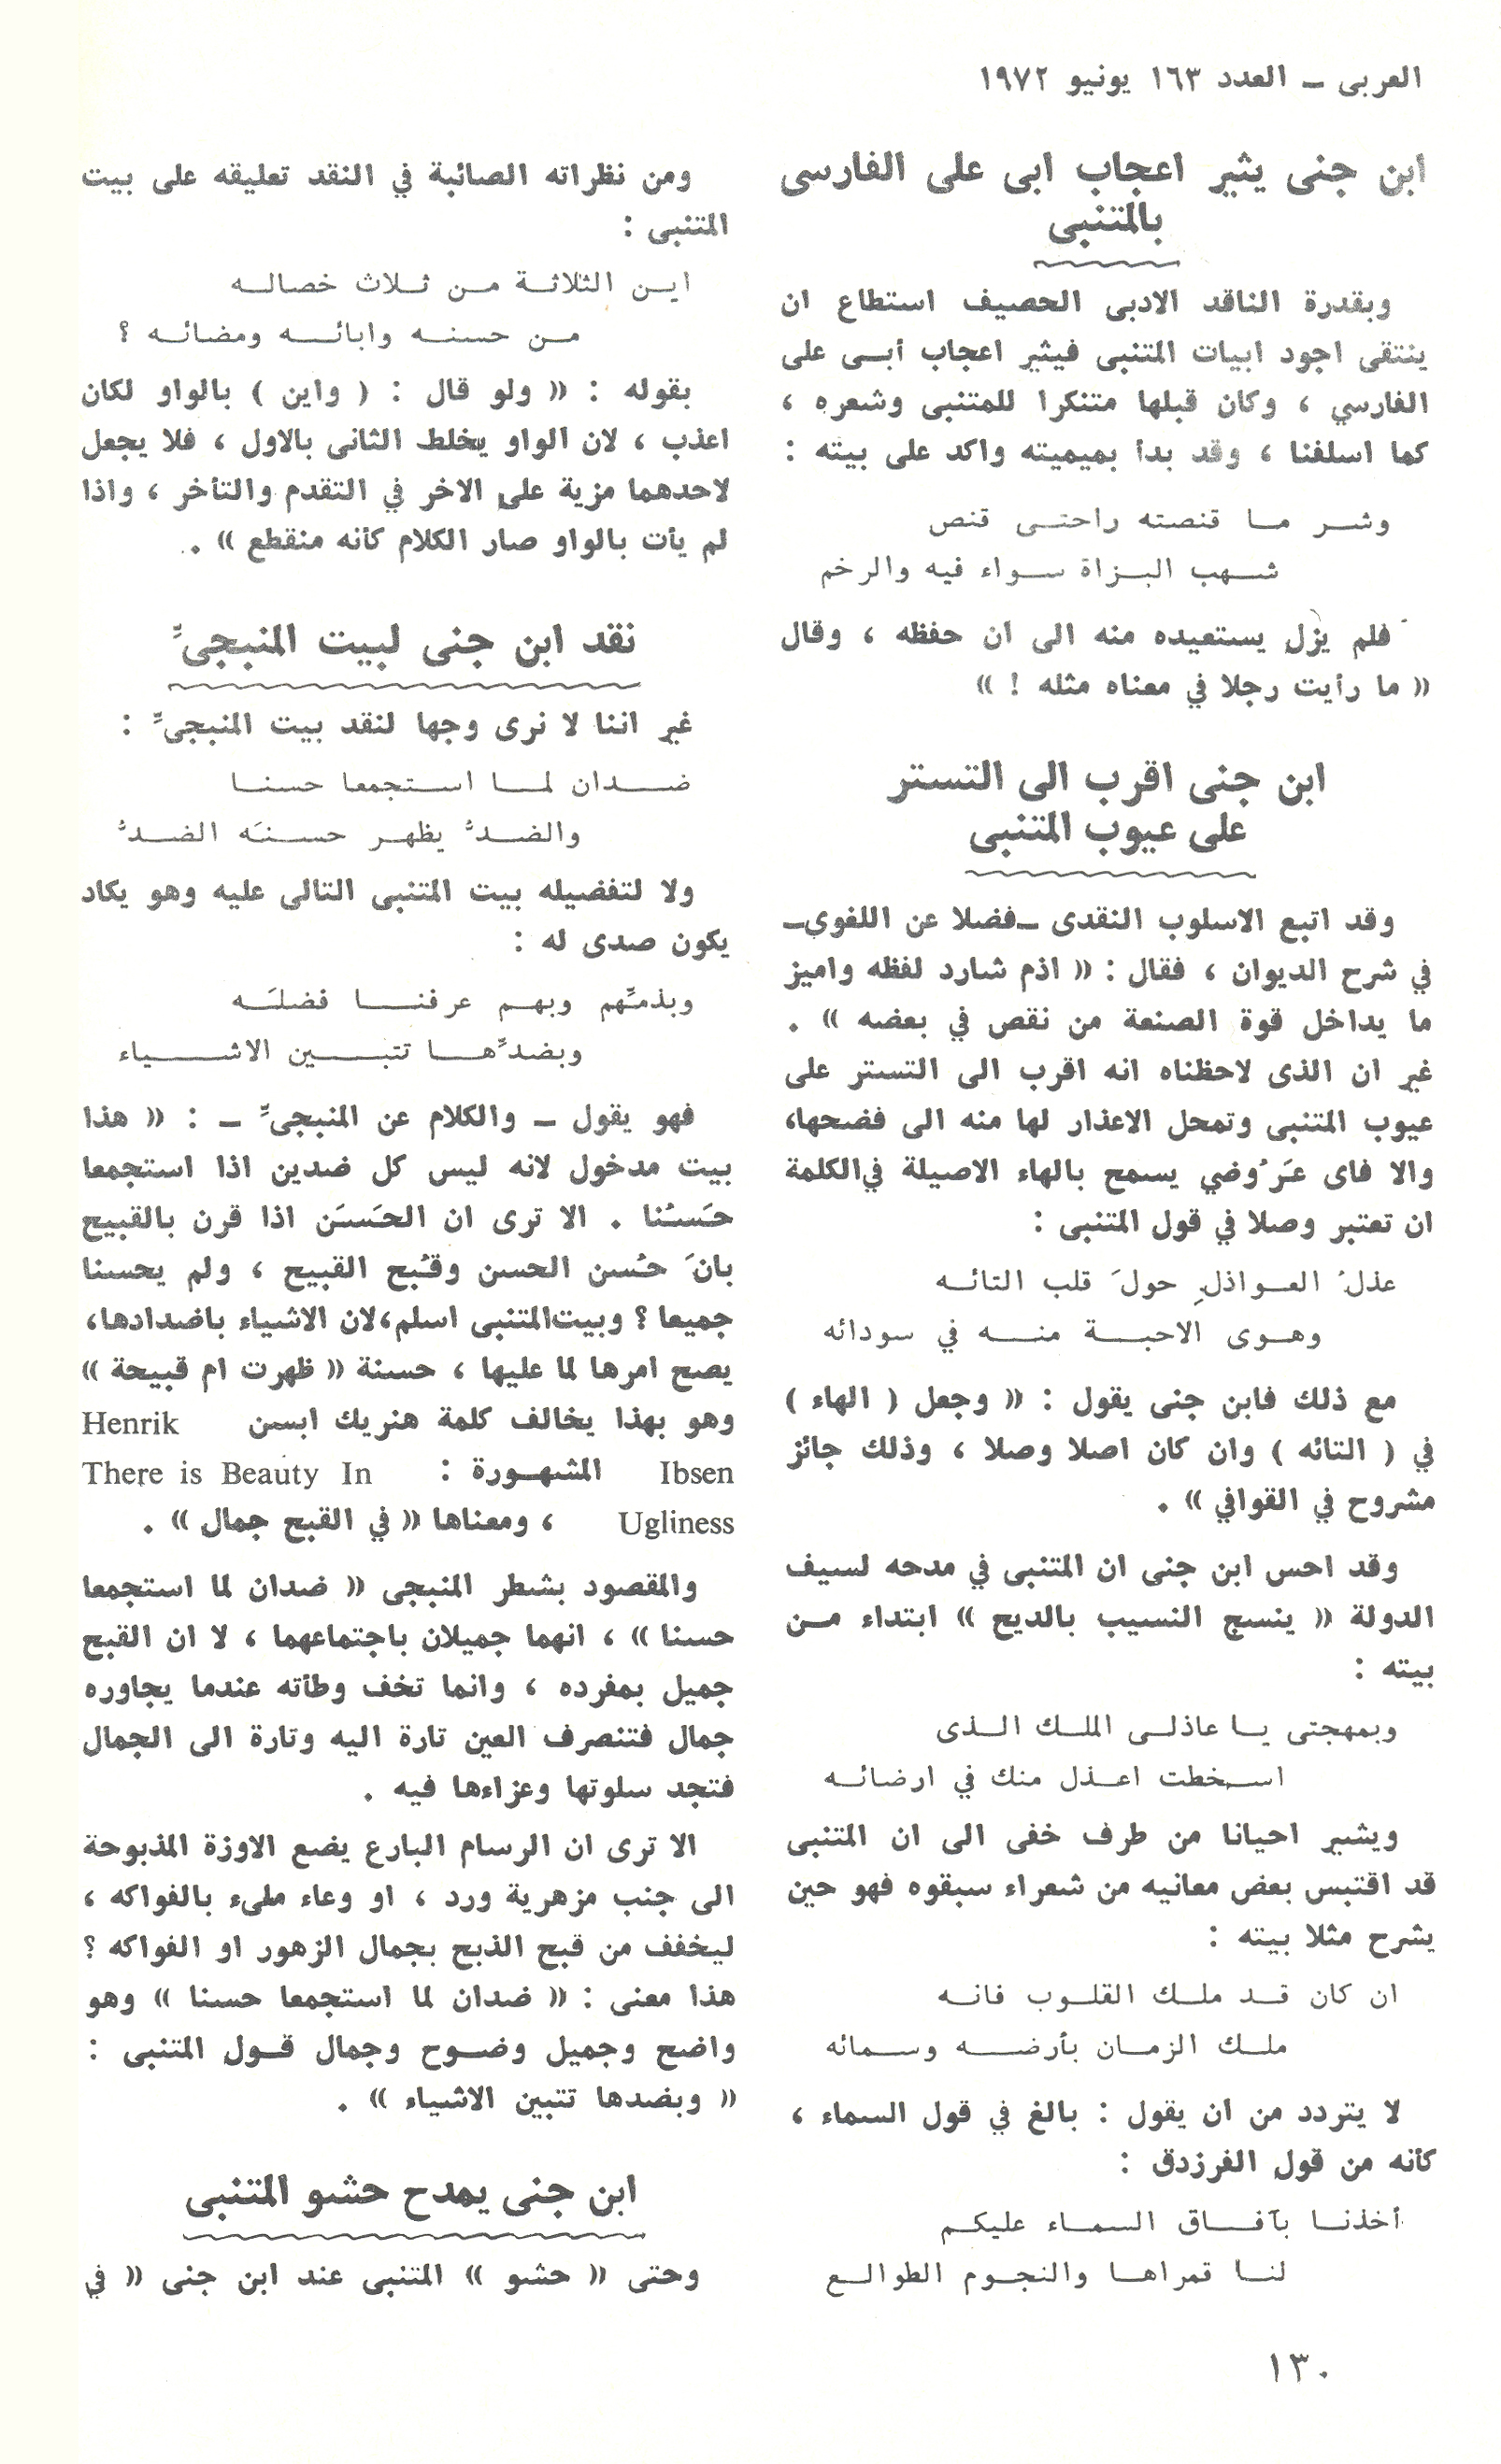 العربى ــ العدد ١٦٣ يونيو ١٩٧٢
ابن جنى يثير اعجاب ابى على الفارسى
بالمتنبى
وبقدرة الناقد الادبى الحصيف استطاع ان
ينتقى اجود ابيات المتنبى فيثير اعجاب أبى على
الفارسي ، وكان قبلها متنكرا للمتنبى وشعره ،
كما اسلفنا ، وقد بدأ بميميته واكد على بيته :
وشر ما قنصته راحتى قنص
شهب البزاة سواء فيه والرخم
فلم يزل يستعيده منه الى ان حفظه ، وقال
« ما رأيت رجلا في معناه مثله ! »
ابن جنى اقرب الى التستر
على عيوب المتنبى
وقد اتبع الاسلوب النقدى ــفضلا عن اللغوىــ
في شرح الديوان ، فقال : « اذم شارد لفظه واميز
ما يداخل قوة الصنعة من نقص في بعضه » .
غير ان الذى لاحظناه انه اقرب الى التستر على
عيوب المتنبى وتمحل الاعذار لها منه الى فضحها،
والا فاى عَرُوضي يسمح بالهاء الاصيلة في الكلمة
ان تعتبر وصلا في قول المتنبى :
عذلُ العواذلِ حولَ قلب التائه
وهوى الاحبة منه في سودائه
مع ذلك فابن جنى يقول : « وجعل ( الهاء )
في ( التائه ) وان كان اصلا وصلا ، وذلك جائز
مشروح في القوافي » .
وقد احس ابن جنى ان المتنبى في مدحه لسيف
الدولة « ينسج النسيب بالديح » ابتداء من
بيته :
وبمهجتى يا عاذلى الملك الذى
اسخطت اعذل منك في ارضائه
ويشير احيانا من طرف خفى الى ان المتنبى
قد اقتبس بعض معانيه من شعراء سبقوه فهو حين
يشرح مثلا بيته :
ان كان قد ملك القلوب فانه
ملك الزمان بأرضه وسمائه
لا يتردد من ان يقول : بالغ في قول السماء ،
كأنه من قول الفرزدق :
أخذنا بآفاق السماء عليكم
لنا قمراها والنجوم الطوالع
ومن نظراته الصائبة في النقد تعليقه على بيت
المتنبى :
اين الثلاثة من ثلاث خصاله
من حسنه وابائه ومضائه ؟
بقوله : « ولو قال : ( واين ) بالواو لكان
اعذب ، لان الواو يخلط الثانى بالاول ، فلا يجعل
لاحدهما مزية على الاخر في التقدم والتأخر ، واذا
لم يأت بالواو صار الكلام كأنه منقطع » .
نقد ابن جنى لبيت المنبجىِّ
غير اننا لا نرى وجها لنقد بيت المنبجىِّ :
ضدان لما استجمعا حسنا
والضدُّ يظهر حسنَه الضدُّ
ولا لتفضيله بيت المتنبى التالى عليه وهو يكاد
يكون صدى له :
وبذمِّهم وبهم عرفنا فضلَه
وبضدِّها تتبين الاشياء
فهو يقول ــ والكلام عن المنبجىِّ ــ : « هذا
بيت مدخول لانه ليس كل ضدين اذا استجمعا
حَسُنا . الا ترى ان الحَسَن اذا قرن بالقبيح
بانَ حُسن الحسن وقُبح القبيح ، ولم يحسنا
جميعا ؟ وبيت المتنبى اسلم، لان الاشياء باضدادها،
يصح امرها لما عليها ، حسنة « ظهرت ام قبيحة »
وهو بهذا يخالف كلمة هنريك ابسن Henrik
Ibsen المشهورة : There is Beauty In
Ugliness ، ومعناها « في القبح جمال » .
والمقصود بشطر المنبجى « ضدان لما استجمعا
حسنا » ، انهما جميلان باجتماعهما ، لا ان القبح
جميل بمفرده ، وانما تخف وطأته عندما يجاوره
جمال فتنصرف العين تارة اليه وتارة الى الجمال
فتجد سلوتها وعزاءها فيه .
الا ترى ان الرسام البارع يضع الاوزة المذبوحة
الى جنب مزهرية ورد ، او وعاء ملىء بالفواكه ،
ليخفف من قبح الذبح بجمال الزهور او الفواكه ؟
هذا معنى : « ضدان لما استجمعا حسنا » وهو
واضح وجميل وضوح وجمال قول المتنبى :
« وبضدها تتبين الاشياء » .
ابن جنى يمدح حشو المتنبى
وحتى « حشو » المتنبى عند ابن جنى « في
١٣٠